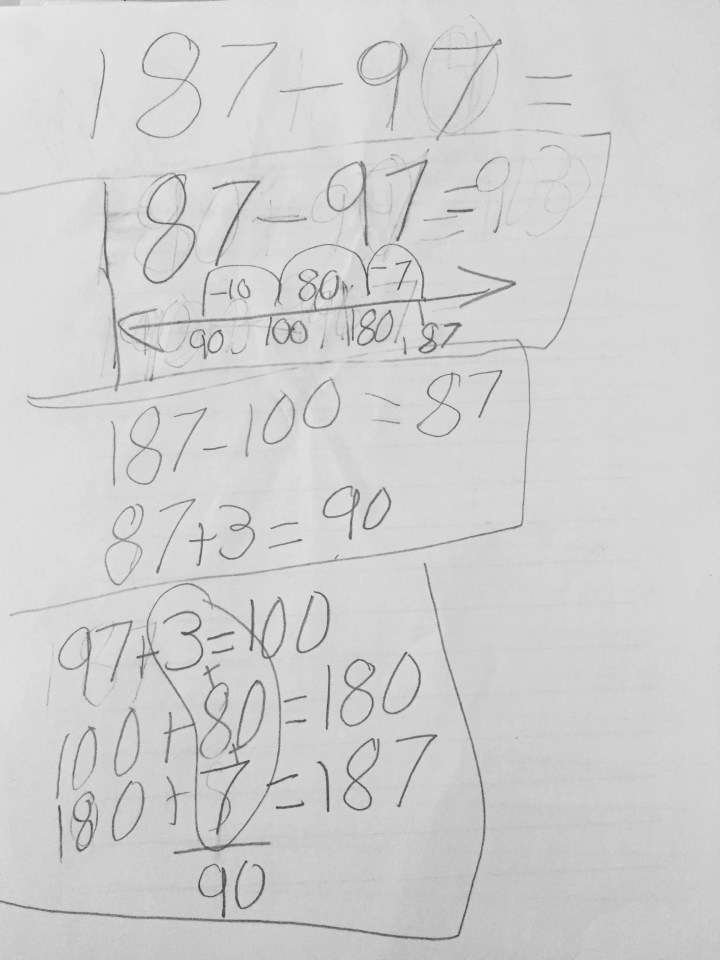 187-97=
187-97=9
-10 80 -7
90 100 180 187
187-100=87
87+3=90
97+3=100
+
100+80=180
+
180+7=187
90